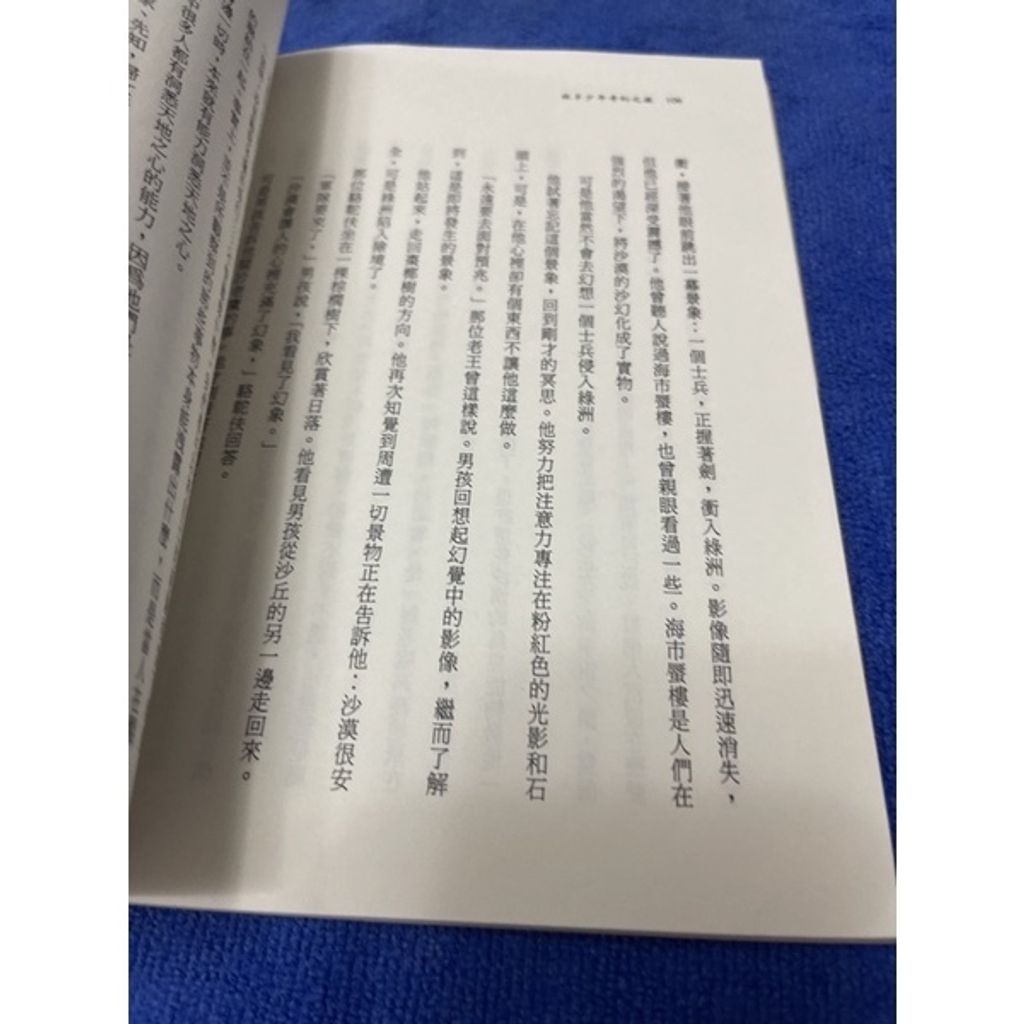 牧羊少年奇幻之旅 106
衝，接著他眼前跳出一幕景象：一個士兵，正握著劍，衝入綠洲。影像隨即迅速消失，
但他已經深受震撼了。他曾聽人說過海市蜃樓，也曾親眼看過一些。海市蜃樓是人們在
強烈的渴望下，將沙漠的沙幻化成了實物。
可是他當然不會去幻想一個士兵侵入綠洲。
他試著忘記這個景象，回到剛才的冥思。他努力把注意力專注在粉紅色的光影和石
頭上，可是，在他心裡卻有個東西不讓他這麼做。
「永遠要去面對預兆。」那位老王曾這樣說。男孩回想起幻覺中的影像，繼而了解
到，這是即將發生的景象。
他站起來，走回棗椰樹的方向。他再次知覺到周遭一切景物正在告訴他：沙漠很安
全，可是綠洲陷入險境了。
那位駱駝伕坐在一棵棕櫚樹下，欣賞著日落。他看見男孩從沙丘的另一邊走回來。
「軍隊要來了，」男孩說，「我看見了幻象。」
「沙漠會讓人的心裡充滿了幻象，」駱駝伕回答。
有能力洞悉天地之心。
很多人都有洞悉天地之心的能力，因為他們
先知，